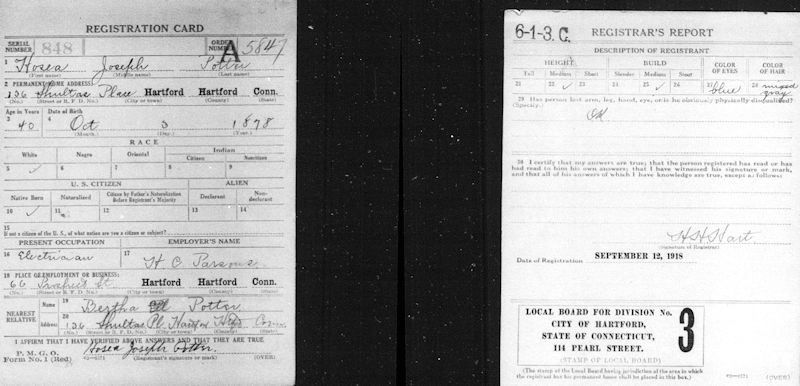 REGISTRATION CARD
SERIAL NUMBER 848 ORDER NUMBER A 5847
1 Hosea Joseph Potter
(First name) (Middle name) (Last name)
2 PERMANENT HOME ADDRESS:
136 Shultas Place Hartford Hartford Conn.
(No.) (Street or R. F. D. No.) (City or town) (County) (State)
Age in Years Date of Birth
3 40 4 Oct 3 1878
(Month.) (Day.) (Year.)
RACE
White Negro Oriental Indian
Citizen Noncitizen
5 ✓ 6 7 8 9
U. S. CITIZEN ALIEN
Native Born Naturalized Citizen by Father's Naturalization Before Registrant's Majority Declarant Non-declarant
10 ✓ 11 12 13 14
15
If not a citizen of the U. S., of what nation are you a citizen or subject?
PRESENT OCCUPATION EMPLOYER'S NAME
16 Electrician 17 H. C. Parsons
18 PLACE OF EMPLOYMENT OR BUSINESS:
66 st. Hartford Hartford Conn.
(No.) (Street or R. F. D. No.) (City or town) (County) (State)
NEAREST RELATIVE Name 19 Bertha Potter
Address 20 136 Shultas Pl. Hartford Conn
(No.) (Street or R. F. D. No.) (City or town) (County) (State)
I AFFIRM THAT I HAVE VERIFIED ABOVE ANSWERS AND THAT THEY ARE TRUE
P. M. G. O.
Form No. 1 (Red) Hosea Joseph Potter
(Registrant's signature or mark) (OVER)
6-1-3. C. REGISTRAR'S REPORT
DESCRIPTION OF REGISTRANT
HEIGHT BUILD COLOR OF EYES COLOR OF HAIR
Tall Medium Short Slender Medium Stout
21 22 ✓ 23 24 25 ✓ 26 27 blue 28 mixed gray
29 Has person lost arm, leg, hand, eye, or is he obviously physically disqualified?
(Specify.)
30 I certify that my answers are true; that the person registered has read or has
had read to him his own answers; that I have witnessed his signature or mark,
and that all of his answers of which I have knowledge are true, except as follows:
H H Hart
(Signature of Registrar)
Date of Registration SEPTEMBER 12, 1918
LOCAL BOARD FOR DIVISION No. 3
CITY OF HARTFORD,
STATE OF CONNECTICUT,
114 PEARL STREET.
(STAMP OF LOCAL BOARD)
(The stamp of the Local Board having jurisdiction of the area in which
the registrant has his permanent home shall be placed in this box.)
(OVER)